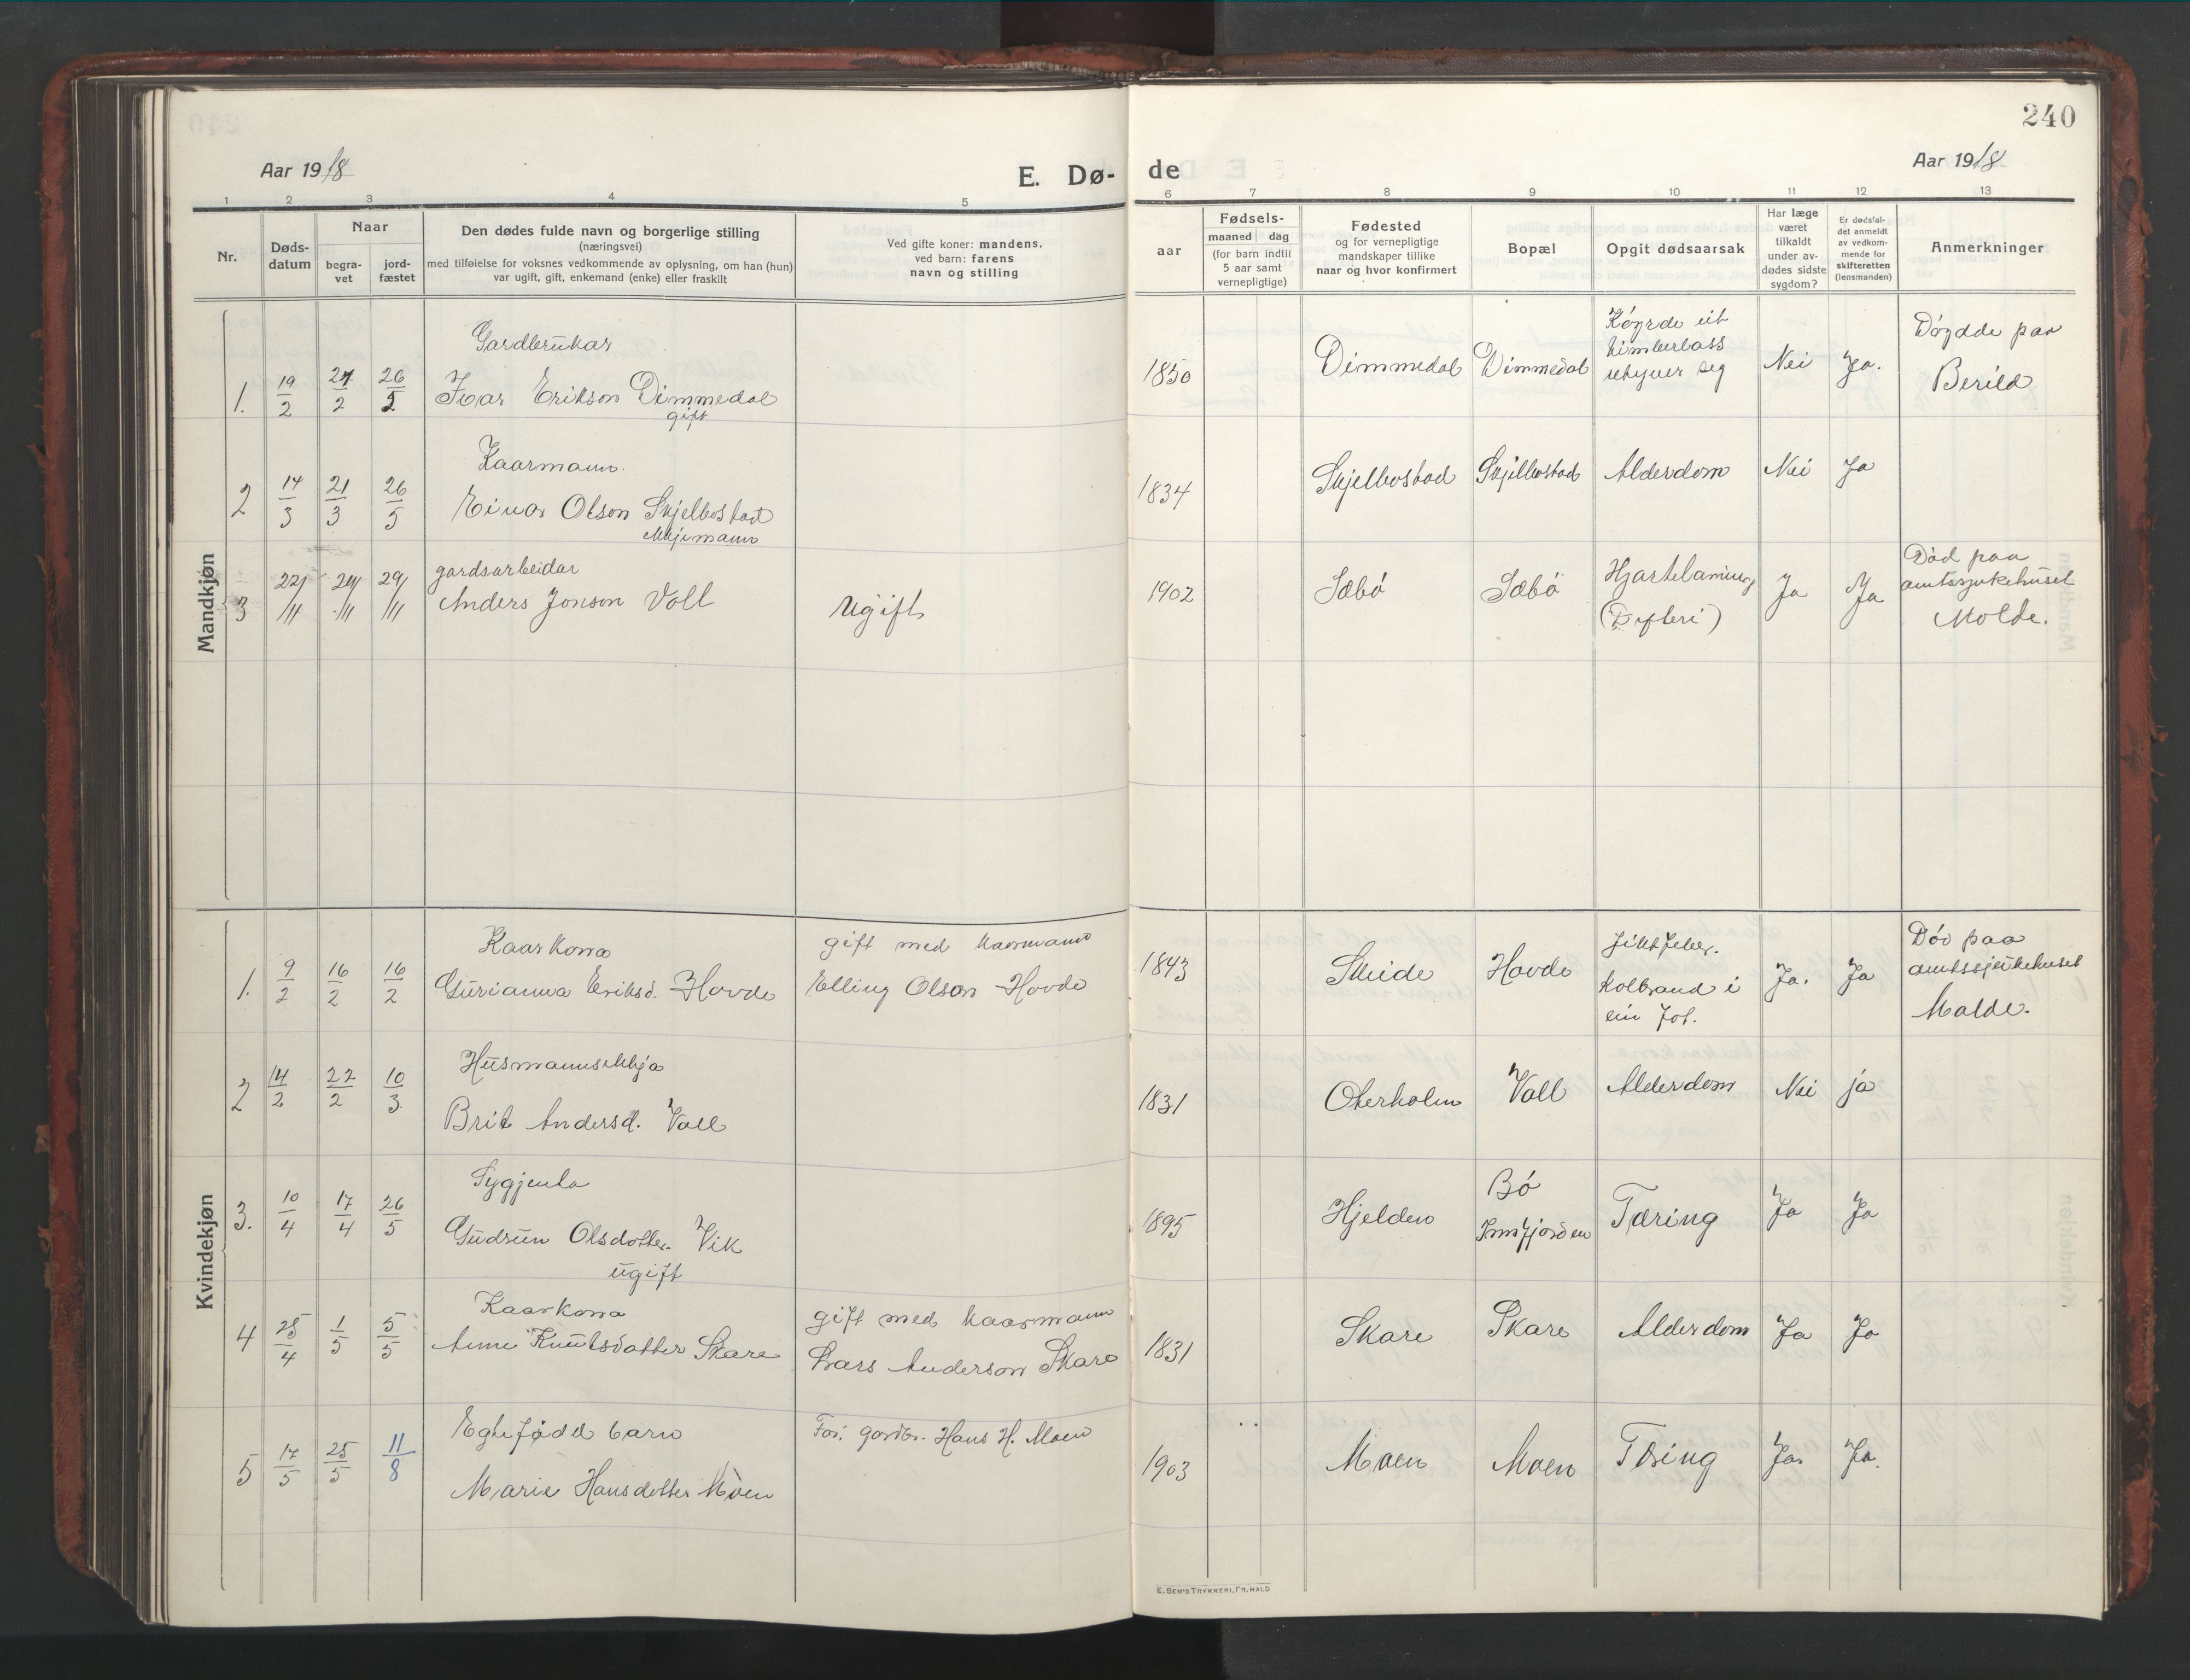 240
Aar 1918
E. Dø-
de
Aar 1918
1 2 3 4 5 6 7 8 9 10 11 12 13
Nr.
Døds-
datum
Naar
begra-
vet
jord-
fæstet
Den dødes fulde navn og borgerlige stilling
(næringsvei)
med tilføielse for voksnes vedkommende av oplysning, om han (hun)
var ugift, gift, enkemand (enke) eller fraskilt
Ved gifte koner: mandens,
ved barn: farens
navn og stilling
aar
Fødsels-
maaned dag
(for barn indtil
5 aar samt
vernepligtige)
Fødested
og for vernepligtige
mandskaper tillike
naar og hvor konfirmert
Bopæl
Opgit dødsaarsak
Har læge
været
tilkaldt
under av-
dødes sidste
sygdom?
Er dødsfal-
det anmeldt
av vedkom-
mende for
skifteretten
(lensmanden)
Anmerkninger
Mandkjøn
Gardbrukar
1. 19/2 27/2 26/5 Ivar Erikson Dimmedal
gift
1850 Dimmedal Dimmedal
Køyrde eit
timberlass
utyver seg
Nei Ja.
Døydde paa
Berild
Kaarmann.
2 14/3 21/3 26/5 Einar Olson Skjelbostad
Ekkjemann
1834 Skjelbostad Skjelbostad Alderdom Nei Ja
gardsarbeidar
3 22/11 29/11 29/11 Anders Jonson Voll
Ugift
1902 Sæbø Sæbø
Hjartelaming
(Difteri)
Ja Ja
Død paa
amtssjukehuset
Molde.
Kvindekjøn
Kaarkona
1. 9/2 16/2 16/2 Gurianna Eriksd. Hovde
gift med kaarmann
Elling Olson Hovde
1843 Skeide Hovde
Giktfeber.
Kolbrand i
ein fot.
Ja. Ja
Død paa
amtssjukehuset
Molde.
Husmannsekkja
2 14/2 22/2 10/3 Brit Andersd. Voll
1831 Oterholm Voll Alderdom Nei ja
Sygjenta
3. 10/4 17/4 26/5 Gudrun Olsdotter Vik
ugift
1895 Hjelden
Bø
Innfjorden
Tæring Ja Ja
Kaarkona
4 25/4 1/5 5/5 Anne Knutsdatter Skare
gift med kaarmann
Lars Anderson Skare
1831 Skare Skare Alderdom Ja Ja
Egtefødd barn
5 17/5 25/5 11/8 Marie Hansdotter Moen
Far: gardbr. Hans H. Moen
1903 Moen Moen Tæring Ja. Ja.
E. SEM'S TRYKKERI, FR.HALD